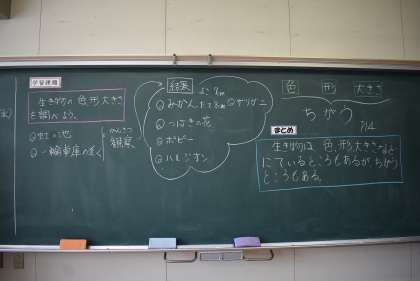 学習課題
生きものの色、形、大きさ
を調べよう。
虹の池
一輪車庫の近く
かんさつ
観察
結果
よこ
みかん たて ザリガニ
つばきの花
ポピー
ハルジオン
色 形 大きさ
ちがう
まとめ
生きものは、色、形、大きさなど
にているところもあるがちがう
ところもある。